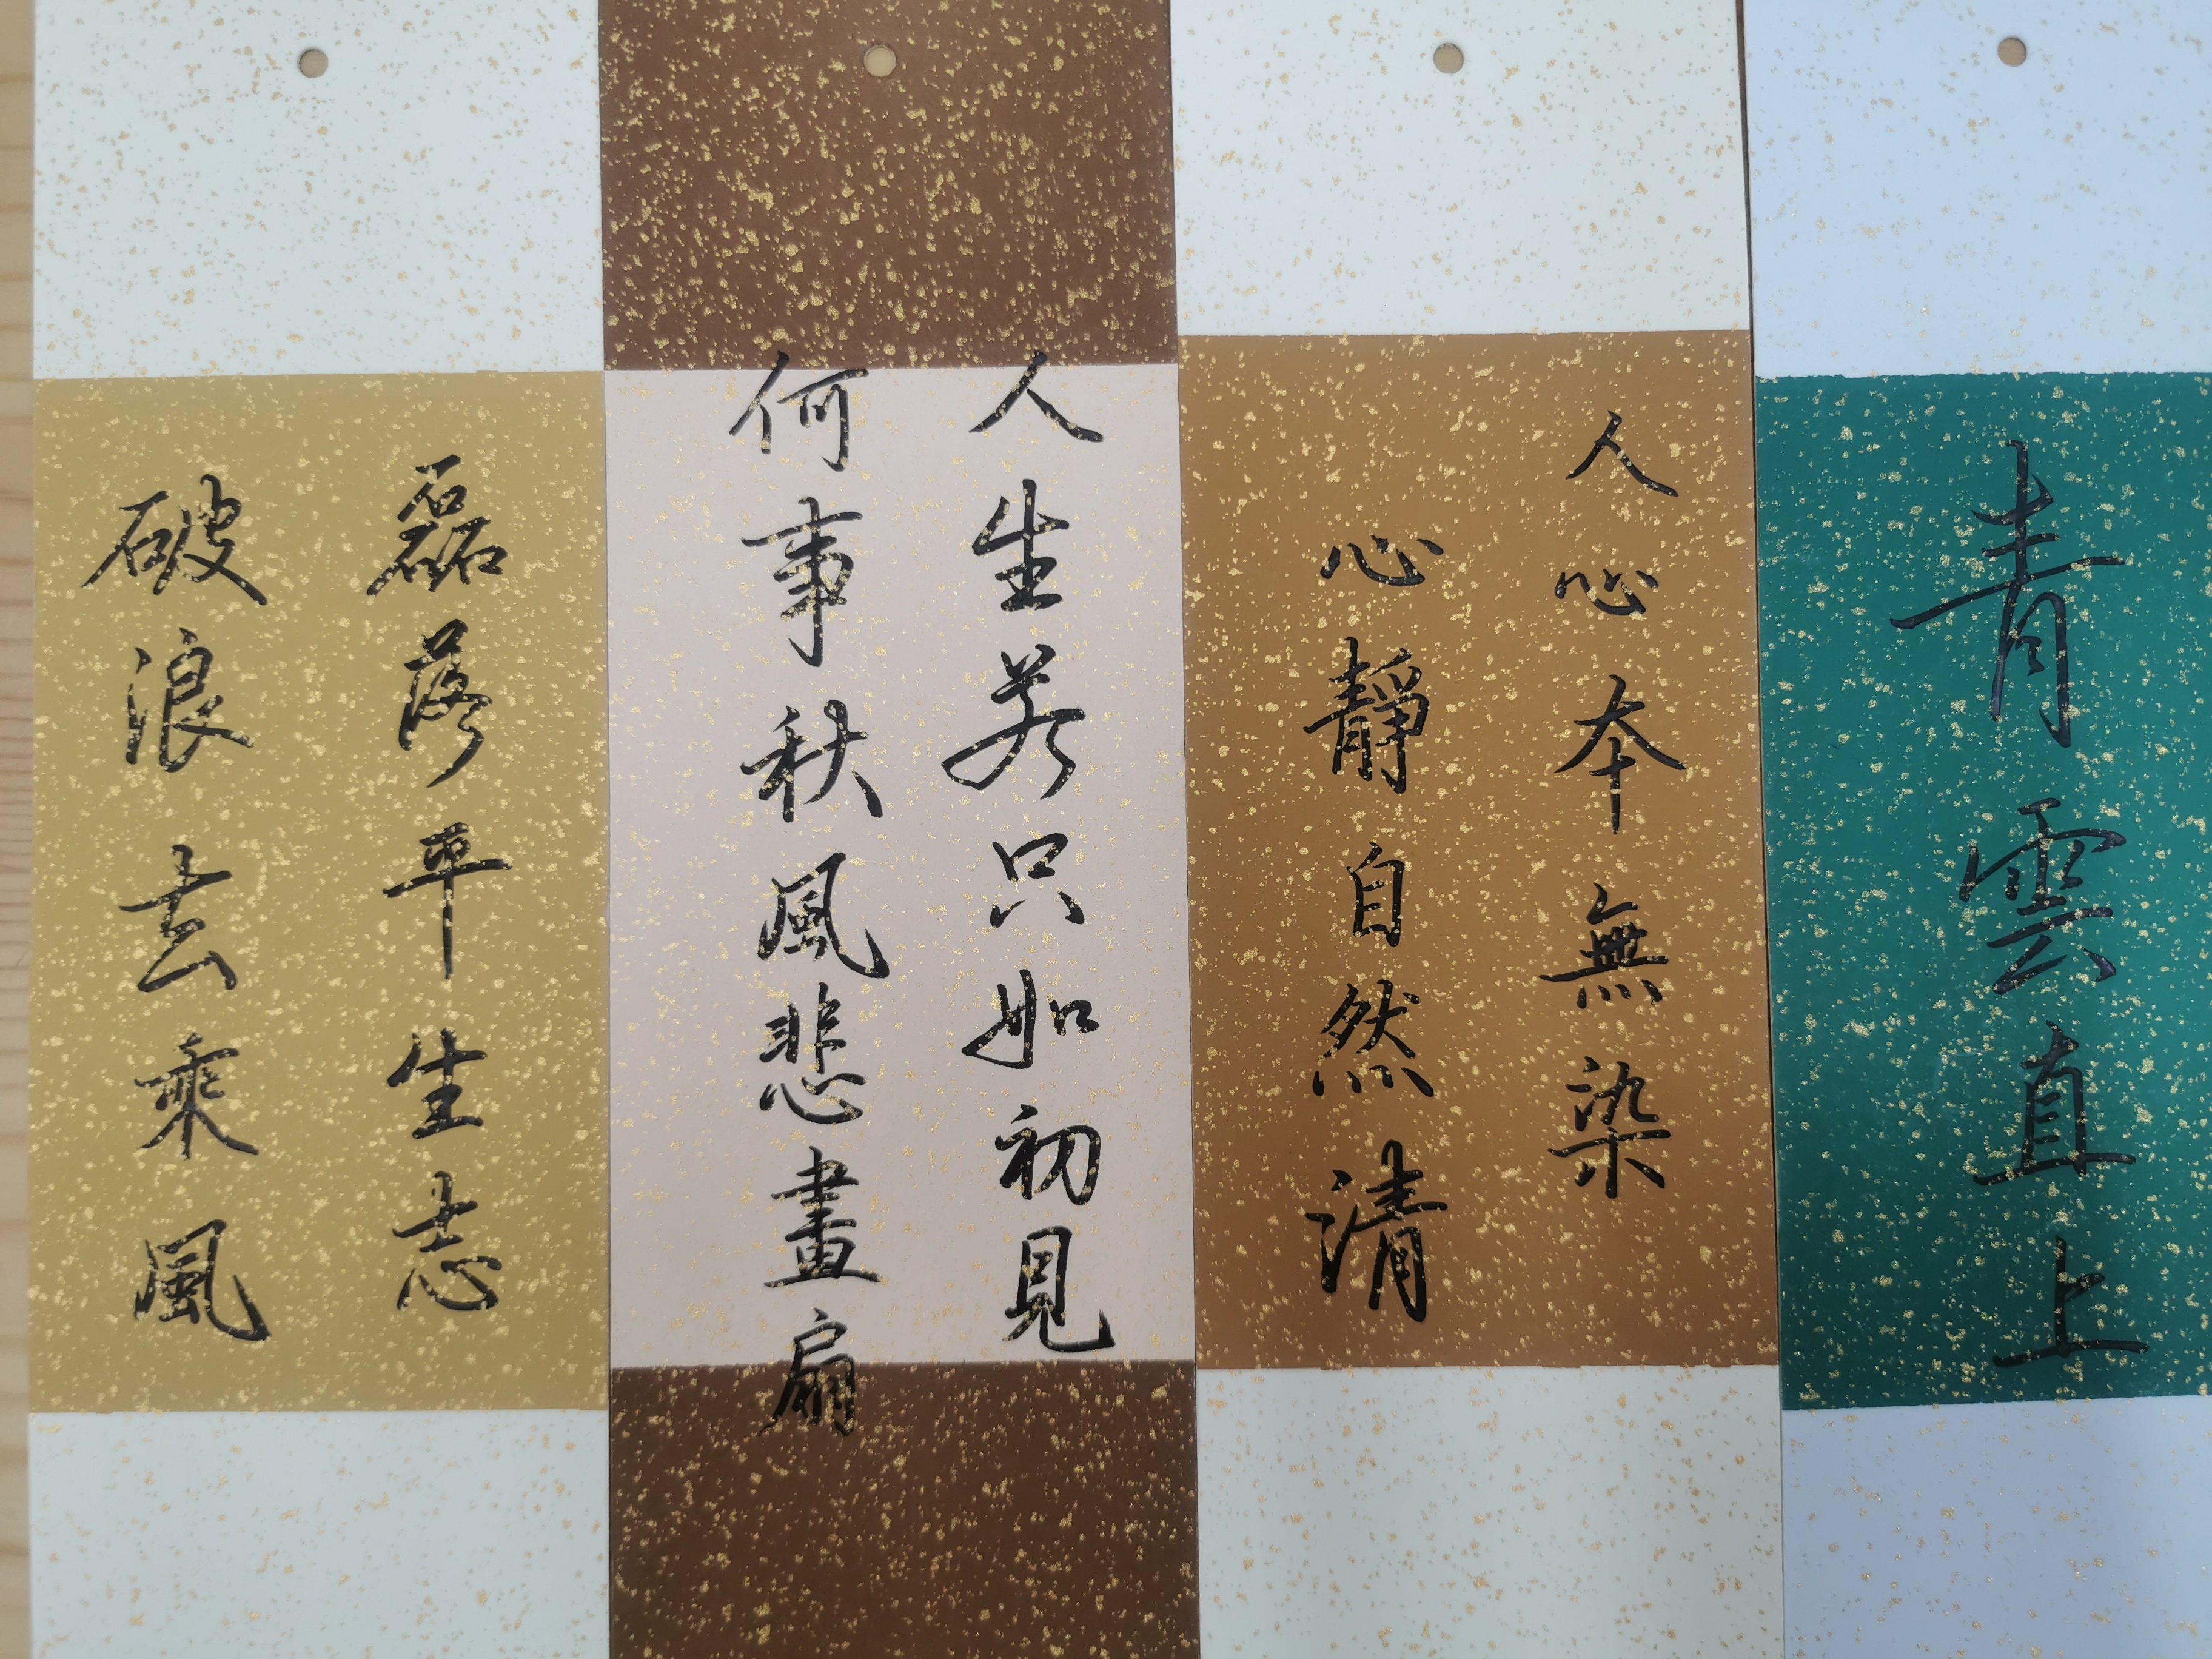 青雲直上
人心本無染
心靜自然清
人生若只如初見
何事秋風悲畫扇
磊落平生志
破浪去乘風